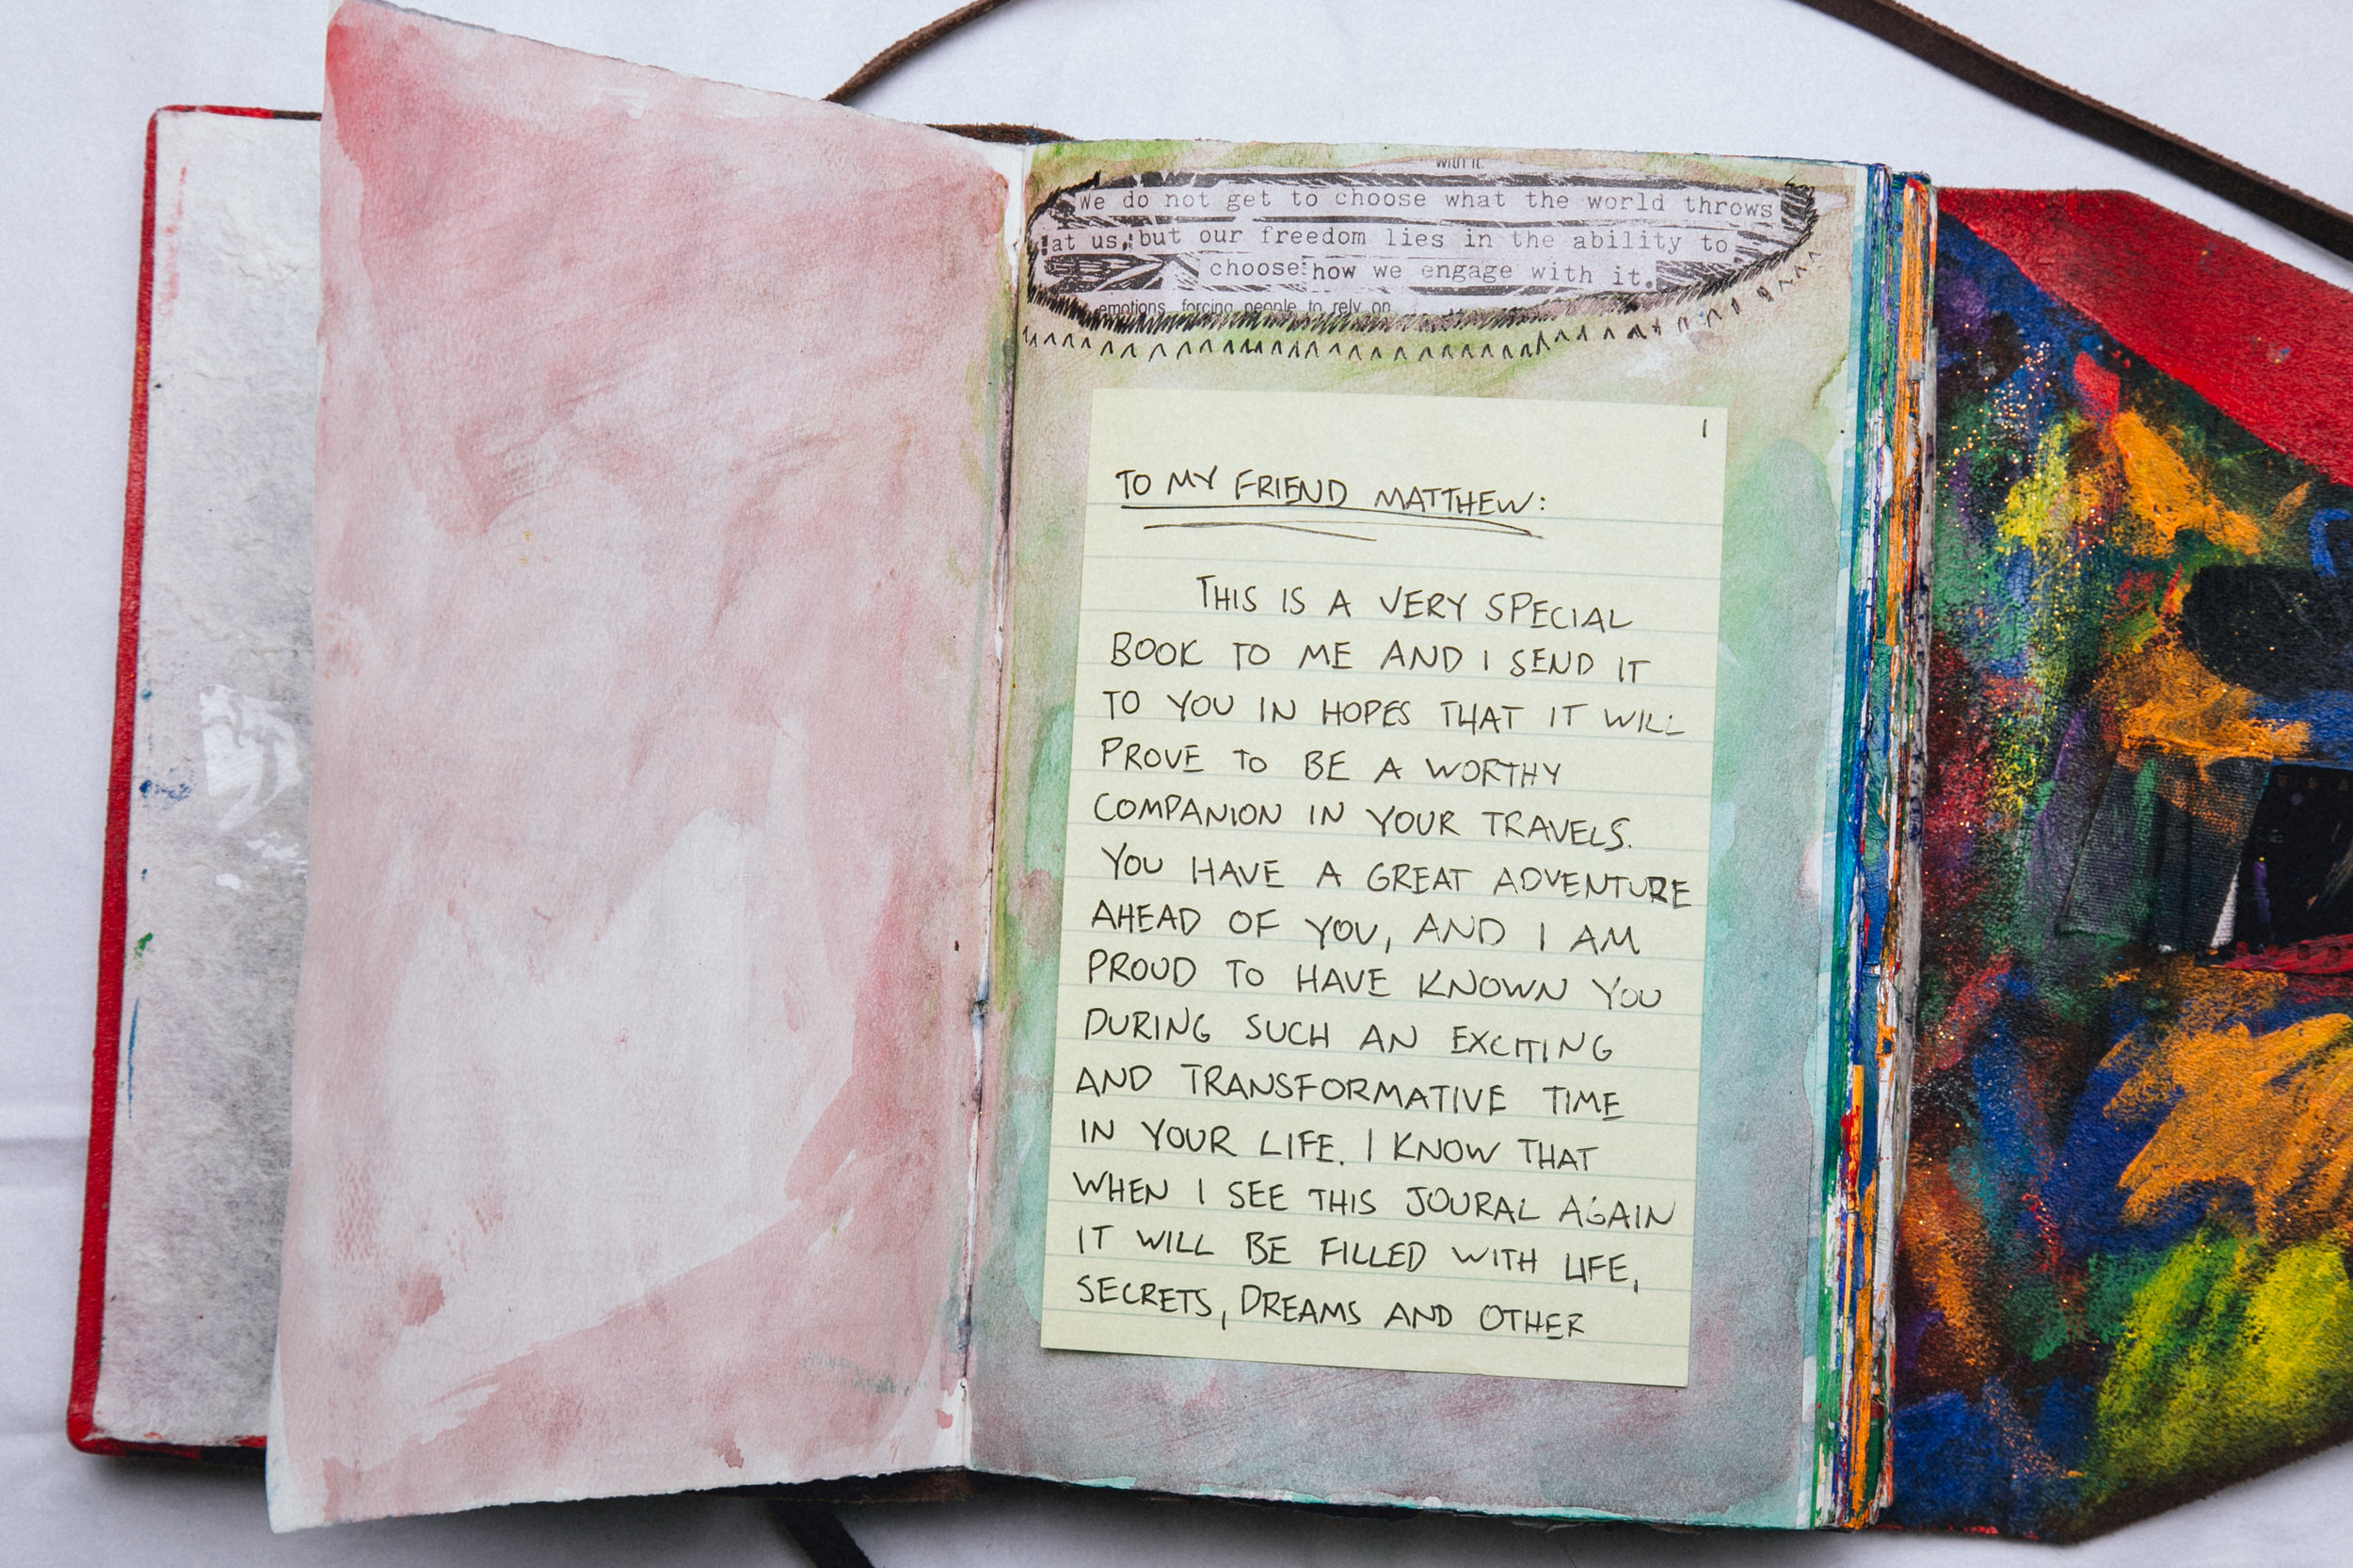 with it.
We do not get to choose what the world throws
at us, but our freedom lies in the ability to
choose how we engage with it.
emotions forcing people to rely on
1
TO MY FRIEND MATTHEW:
THIS IS A VERY SPECIAL
BOOK TO ME AND I SEND IT
TO YOU IN HOPES THAT IT WILL
PROVE TO BE A WORTHY
COMPANION IN YOUR TRAVELS.
YOU HAVE A GREAT ADVENTURE
AHEAD OF YOU, AND I AM
PROUD TO HAVE KNOWN YOU
DURING SUCH AN EXCITING
AND TRANSFORMATIVE TIME
IN YOUR LIFE. I KNOW THAT
WHEN I SEE THIS JOURAL AGAIN
IT WILL BE FILLED WITH LIFE,
SECRETS, DREAMS AND OTHER